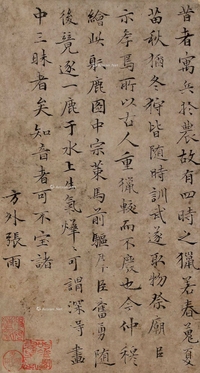 昔者寓兵於農故有四時之獵若春蒐夏
苗秋獮冬狩皆隨時訓武遂取物祭廟以
示孝焉所以古人重獵輒而不廢也今仲穆
繪此射鹿圖中宗策馬前驅厥臣奮勇隨
後覽逐一鹿于水上生氣燁燁可謂深得畫
中三昧者矣知音者可不寶諸
方外張雨